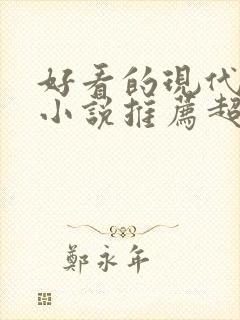 好看的現代
小說推薦超
鄭永年